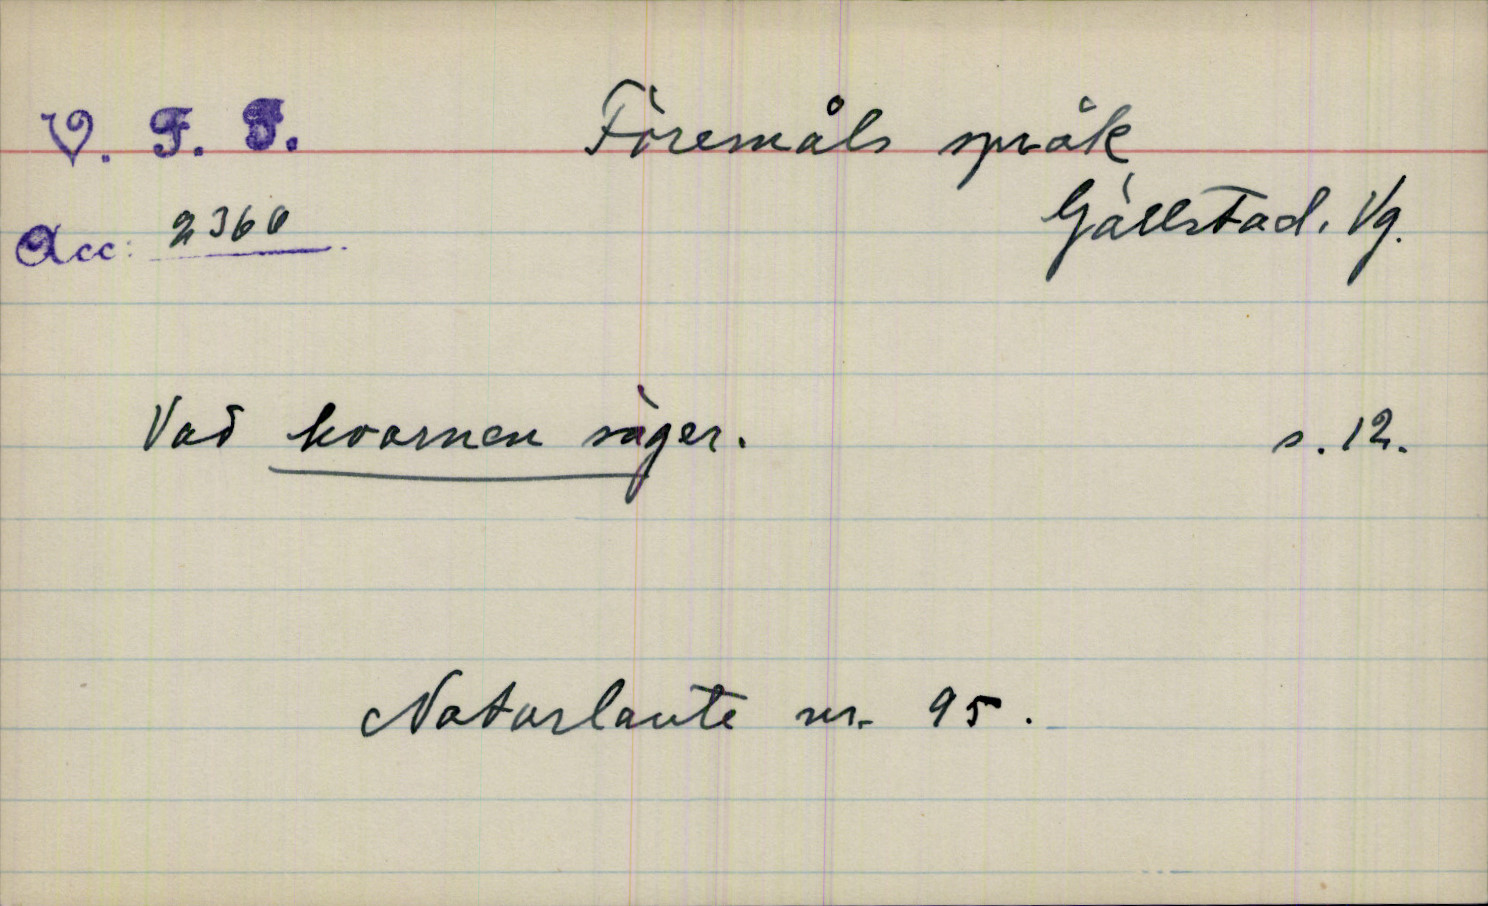 V. F. F. Föremåls språk
Acc: 2360 Gällstad. Vg.
Vad kvarnen säger. s. 12.
Naturlaute nr. 95.